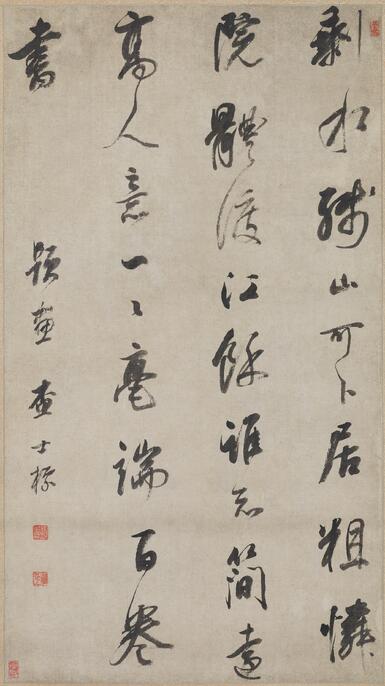 剩水殘山可卜居粗憐
院體渡江餘誰知簡遠
高人意一〻毫端百卷
書
題畫 查士標